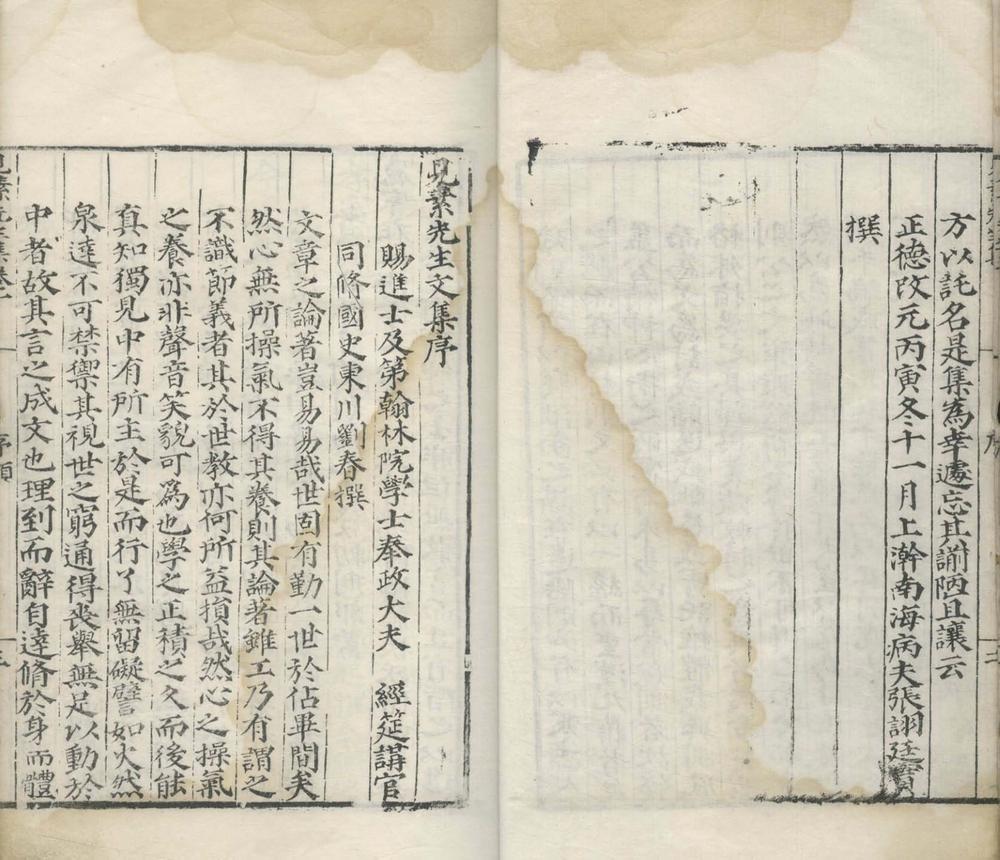 方以託名是集為幸遽忘其謭陋且讓云
正德改元丙寅冬十一月上澣南海病夫張詡廷實
撰
見素先生文集序
賜進士及第翰林院學士奉政大夫 經筵講官
同脩國史東川劉春撰
文章之論著豈易易哉世固有勤一世於佔畢間矣
然心無所操氣不得其養則其論著雖工乃有謂之
不識節義者其於世教亦何所益損哉然心之操氣
之養亦非聲音笑貌可為也學之正積之久而後能
真知獨見中有所主於是而行了無留礙譬如火然
泉達不可禁禦其視世之窮通得喪舉無足以動於
中者故其言之成文也理到而辭自達脩於身而體